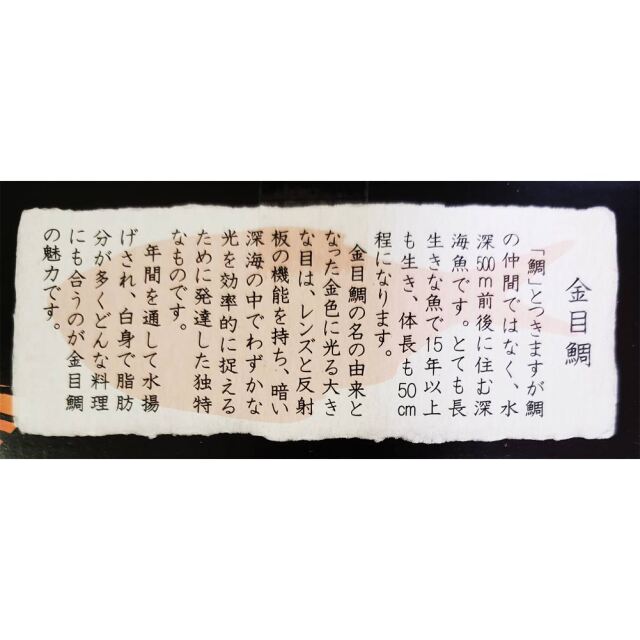 金目鯛
「鯛」とつきますが鯛
の仲間ではなく、水
深500m前後に住む深
海魚です。とても長
生きな魚で15年以上
も生き、体長も50cm
程になります。
金目鯛の名の由来と
なった金色に光る大き
な目は、レンズと反射
板の機能を持ち、暗い
深海の中でわずかな
光を効率的に捉える
ために発達した独特
なものです。
年間を通して水揚
げされ、白身で脂肪
分が多くどんな料理
にも合うのが金目鯛
の魅力です。